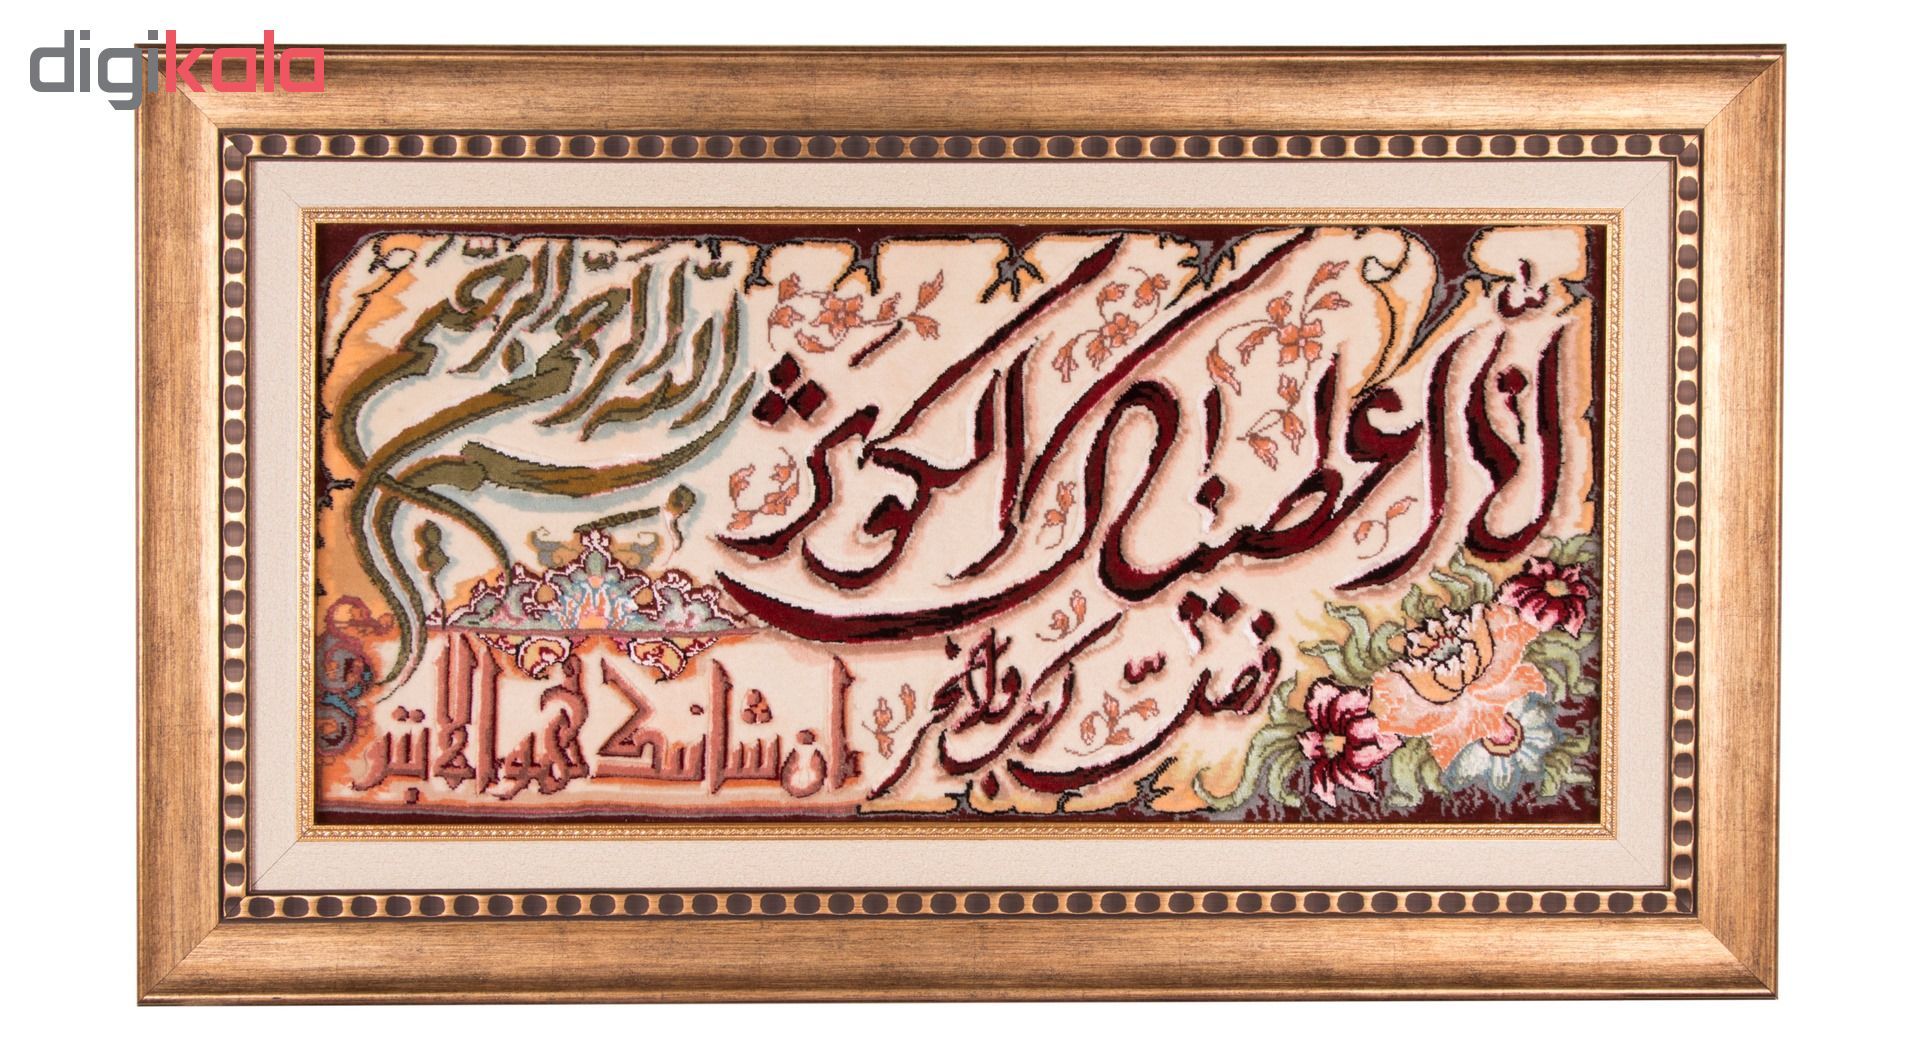 digikala
بسم الله الرحمن الرحیم
انّا اعطیناک الکوثر
فصلّ لربک وانحر
ان شانئک هو الابتر